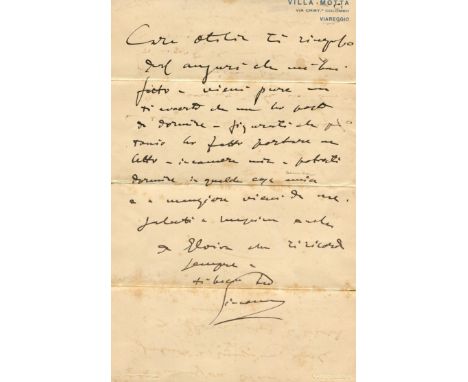 VILLA-MOTTA
VIA CRIST. COLOMBO
VIAREGGIO
Cara Otilia ti ringrazio
degli auguri che mi hai
fatto - vieni pure ma
ti avverto che non ho posto
da dormire - figurati che
Tonio ho fatto portare un
letto - in camera mia - potresti
dormire in qualche casa
e a mangiare vieni da me.
Saluti a anche
da Elvira che ti ricorda
sempre -
ti bacia tuo
Giacomo